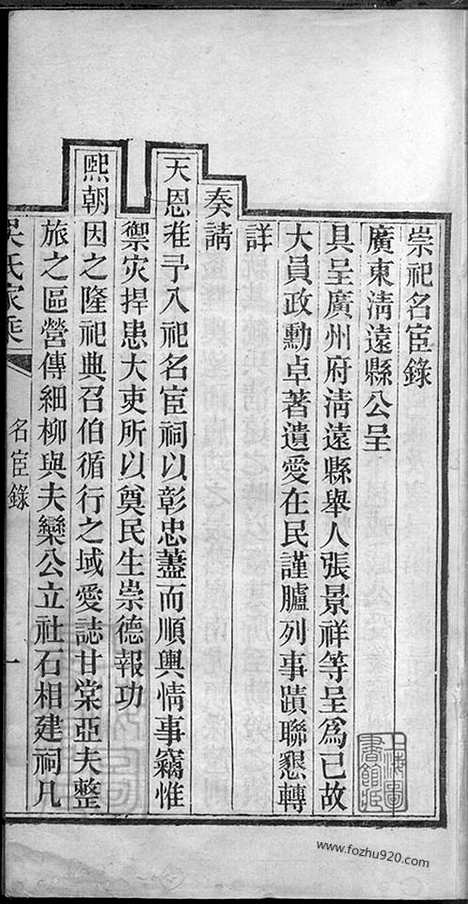 崇祀名宦錄
廣東淸遠縣公呈
具呈廣州府淸遠縣舉人張景祥等呈爲已故
大員政勳卓著遺愛在民謹臚列事蹟聯懇轉
詳
奏請
天恩准予入祀名宦祠以彰忠藎而順輿情事竊惟
禦灾捍患大吏所以奠民生崇德報功
熙朝因之隆祀典召伯循行之域愛誌甘棠亞夫整
旅之區營傳細柳與夫欒公立社石相建祠凡
吳氏家乘
名宦錄
一
上海圖書館藏
www.fozhu920.com